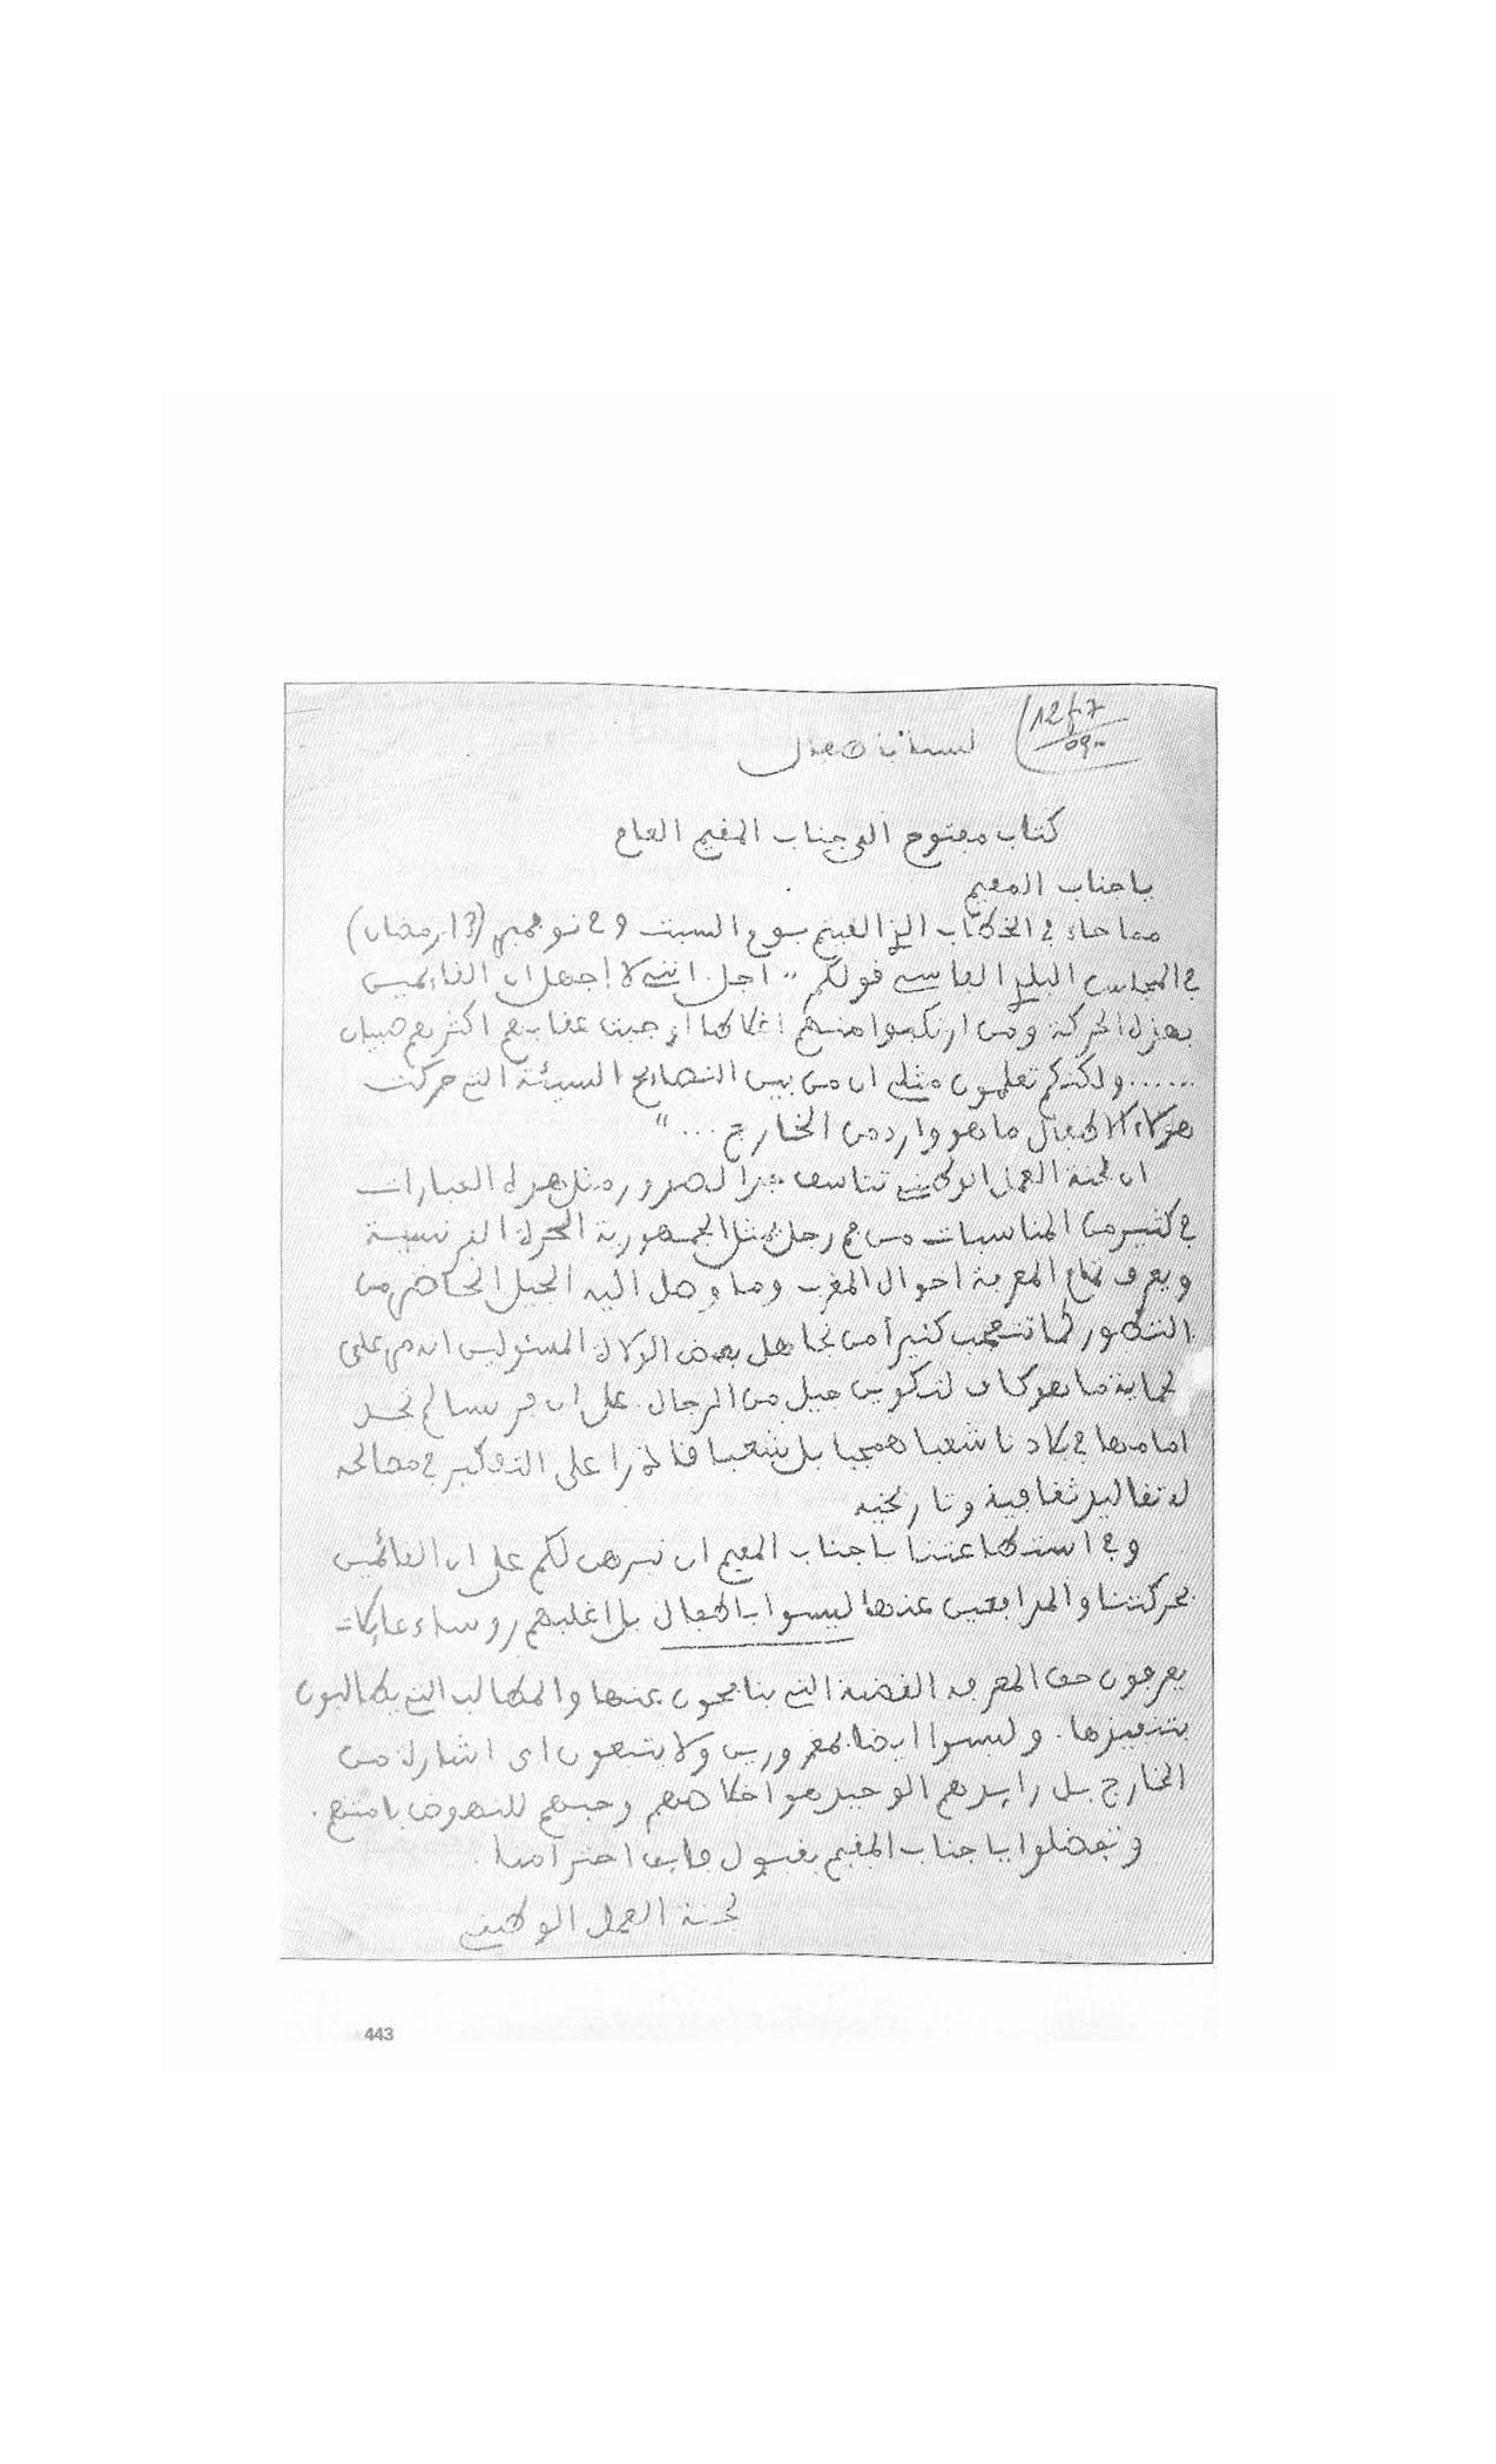 1267
090
لسنا باطفال
كتاب مفتوح الى جناب المقيم العام
يا جناب المقيم
مما جاء في الخطاب الذي القيتم يوم السبت و نونمبر (13 رمضان)
في المجلس البلدي الفاسي قولكم " اجل انني لا اجهل ان القائمين
بهذه الحركة ومن ارتكبوا منهم اغلاطا اوجبت عقابهم اكثرهم صبيان
...... ولكنكم تعلمون مثلي ان من بين النصائح السيئة التي حركت
هؤلاء الاطفال ما هو وارد من الخارج ... "
ان لجنة العمل الوطني تتاسف جدا لصدور مثل هذه العبارات
في كثير من المناسبات من فم رجل يمثل الجمهورية الحرة الفرنسية
ويعرف تمام المعرفة احوال المغرب وما وصل اليه الجيل الحاضر من
التطور كما تتعجب كثيرا من تجاهل بعض الولاة المسئولين انه مر على
الحماية ما هو كاف لتكوين جيل من الرجال. على ان فرنسا لم تجد
امامها في بلادنا شعبا همجيا بل شعبا قادرا على التفكير في مصالحه
له تقاليد ثقافية وتاريخية
وفي استطاعتنا يا جناب المقيم ان نبرهن لكم على ان القائمين
بحركتنا والمدافعين عنها ليسوا باطفال بل اغلبهم رؤساء عائلات
يعرفون حق المعرفة القضية التي ينافحون عنها والمطالب التي يطالبون
بتنفيذها. وليسوا ايضا بمغرورين ولا يتبعون اى اشارة من
الخارج بل رايدهم الوحيد هو اخلاصهم وحبهم للنهوض بامتهم.
وتفضلوا يا جناب المقيم بقبول فايق احترامنا.
لجنة العمل الوطني
443